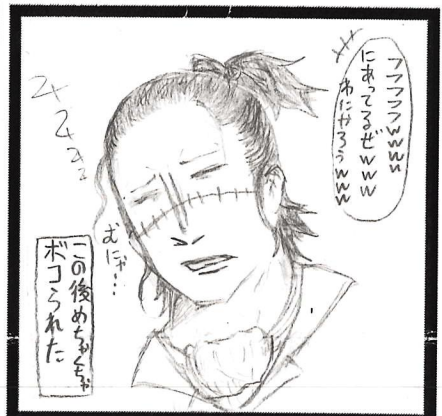 フフフフフwwww
にあってるぜwww
わにやろうwww
zzzz
むにゃ…
この後めちゃくちゃ
ボコられた